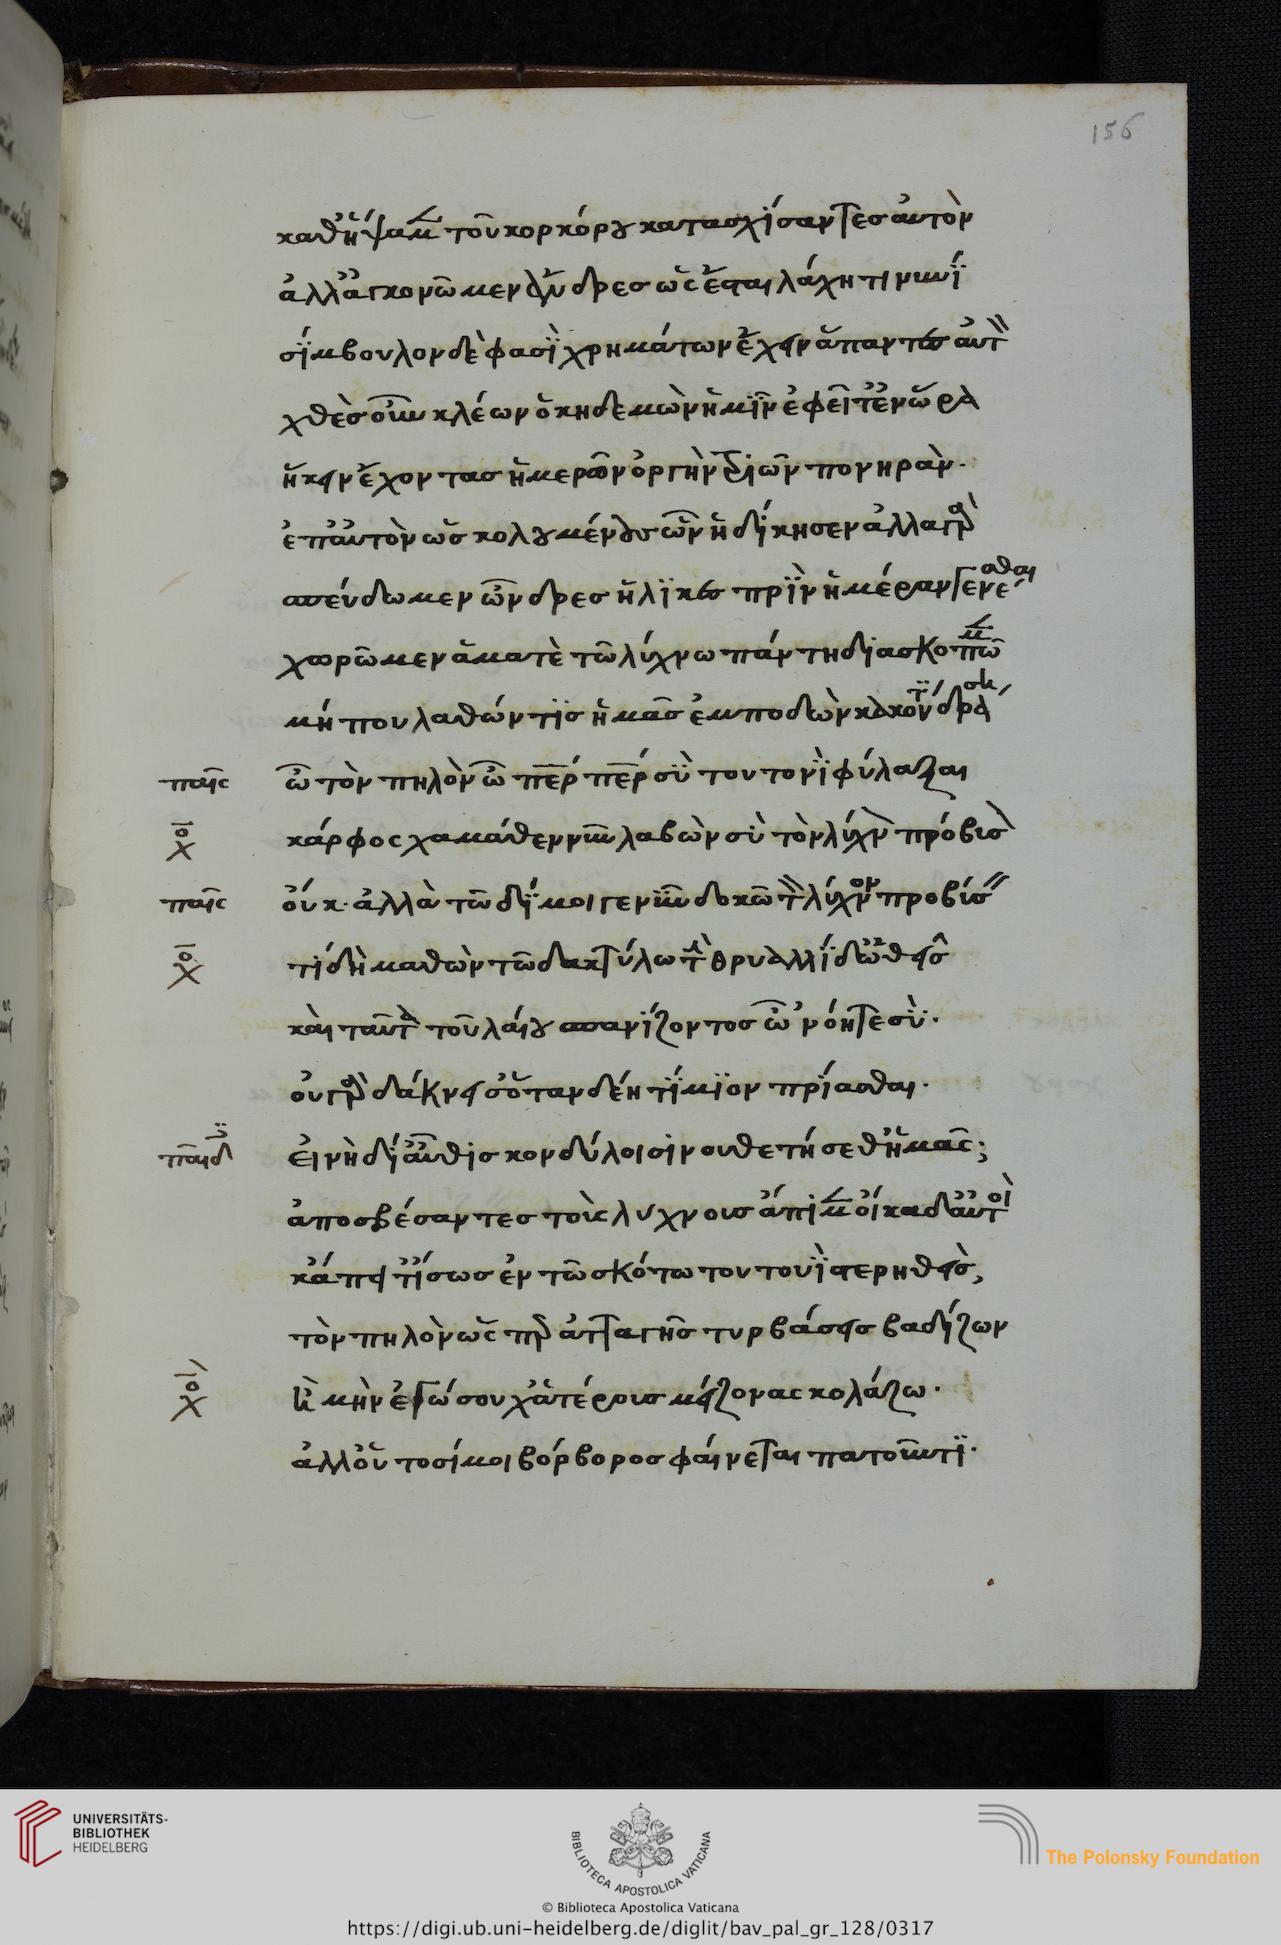 156
καθήψαμ τοῦ κορκόρου κατασχίσαντες αὐτὸν
ἀλλ' ἐγκονῶμεν ὦνδρες ὡς ἔσται λάχητι νυνί
σίμβουλον δὲ φασὶ χρημάτων ἔχειν ἅπαντες αὐτ
χθὲς οὖν κλέων ὁ κηδεμὼν ἡμῖν ἐφεῖτ' ἐν ὥρα
ἥκειν ἔχοντας ἡμερῶν ὀργὴν τριῶν πονηρὰν.
ἐπ' αὐτὸν ὡς κολουμένους ὧν ἠδίκησεν ἀλλα
σπεύδωμεν ὦνδρες ἥλικες πρὶν ἡμέραν γενέσθαι
χωρῶμεν ἅμα τὲ τῶ λύχνω πάντη διασκοπῶμ
μή που λαθών τις ἡμᾶς ἐμποδὼν κακόν τι δρασ
παῖς ὦ τὸν πηλὸν ὦ περ περ σὺ τουτονὶ φύλαξαι
χο κάρφος χαμᾶθεν νῦν λαβὼν σὺ τὸν λύχν πρόβισ
παῖς οὔκ. ἀλλὰ τῶ δί μοι γενῦν δοκῶ τ λύχνον προβίσ
χο τί δὴ μαθὼν τῶ δακτύλω τ θρυαλλίδ' ὠθεῖς
καὶ ταῦτα τοῦ λαίου σπανίζοντος ὦ νόητε σὺ.
οὐ γὰρ δάκνει σ' ὅταν δέη τίμιον πρίασθαι.
παιδ εἰ νὴ δί' αὖθις κονδύλοισι νουθετήσεθ' ἡμᾶς;
ἀποσβέσαντες τοὺς λύχνους ἄπιμ οἴκαδ' αὐτοὶ
κἄπειτ' ἴσως ἐν τῶ σκότω τουτουὶ στερηθεὶς,
τὸν πηλὸν ὡς πρ ἀτταγῆς τυρβάσεις βαδίζων
χο ἦ μὴν ἐγώ σου χἀτέρους μείζονας κολάζω.
ἀλλ' οὗτοσί μοι βόρβορος φαίνεται πατοῦντι.
UNIVERSITÄTS-
BIBLIOTHEK
HEIDELBERG
BIBLIOTECA APOSTOLICA VATICANA
The Polonsky Foundation
© Biblioteca Apostolica Vaticana
https://digi.ub.uni-heidelberg.de/diglit/bav_pal_gr_128/0317